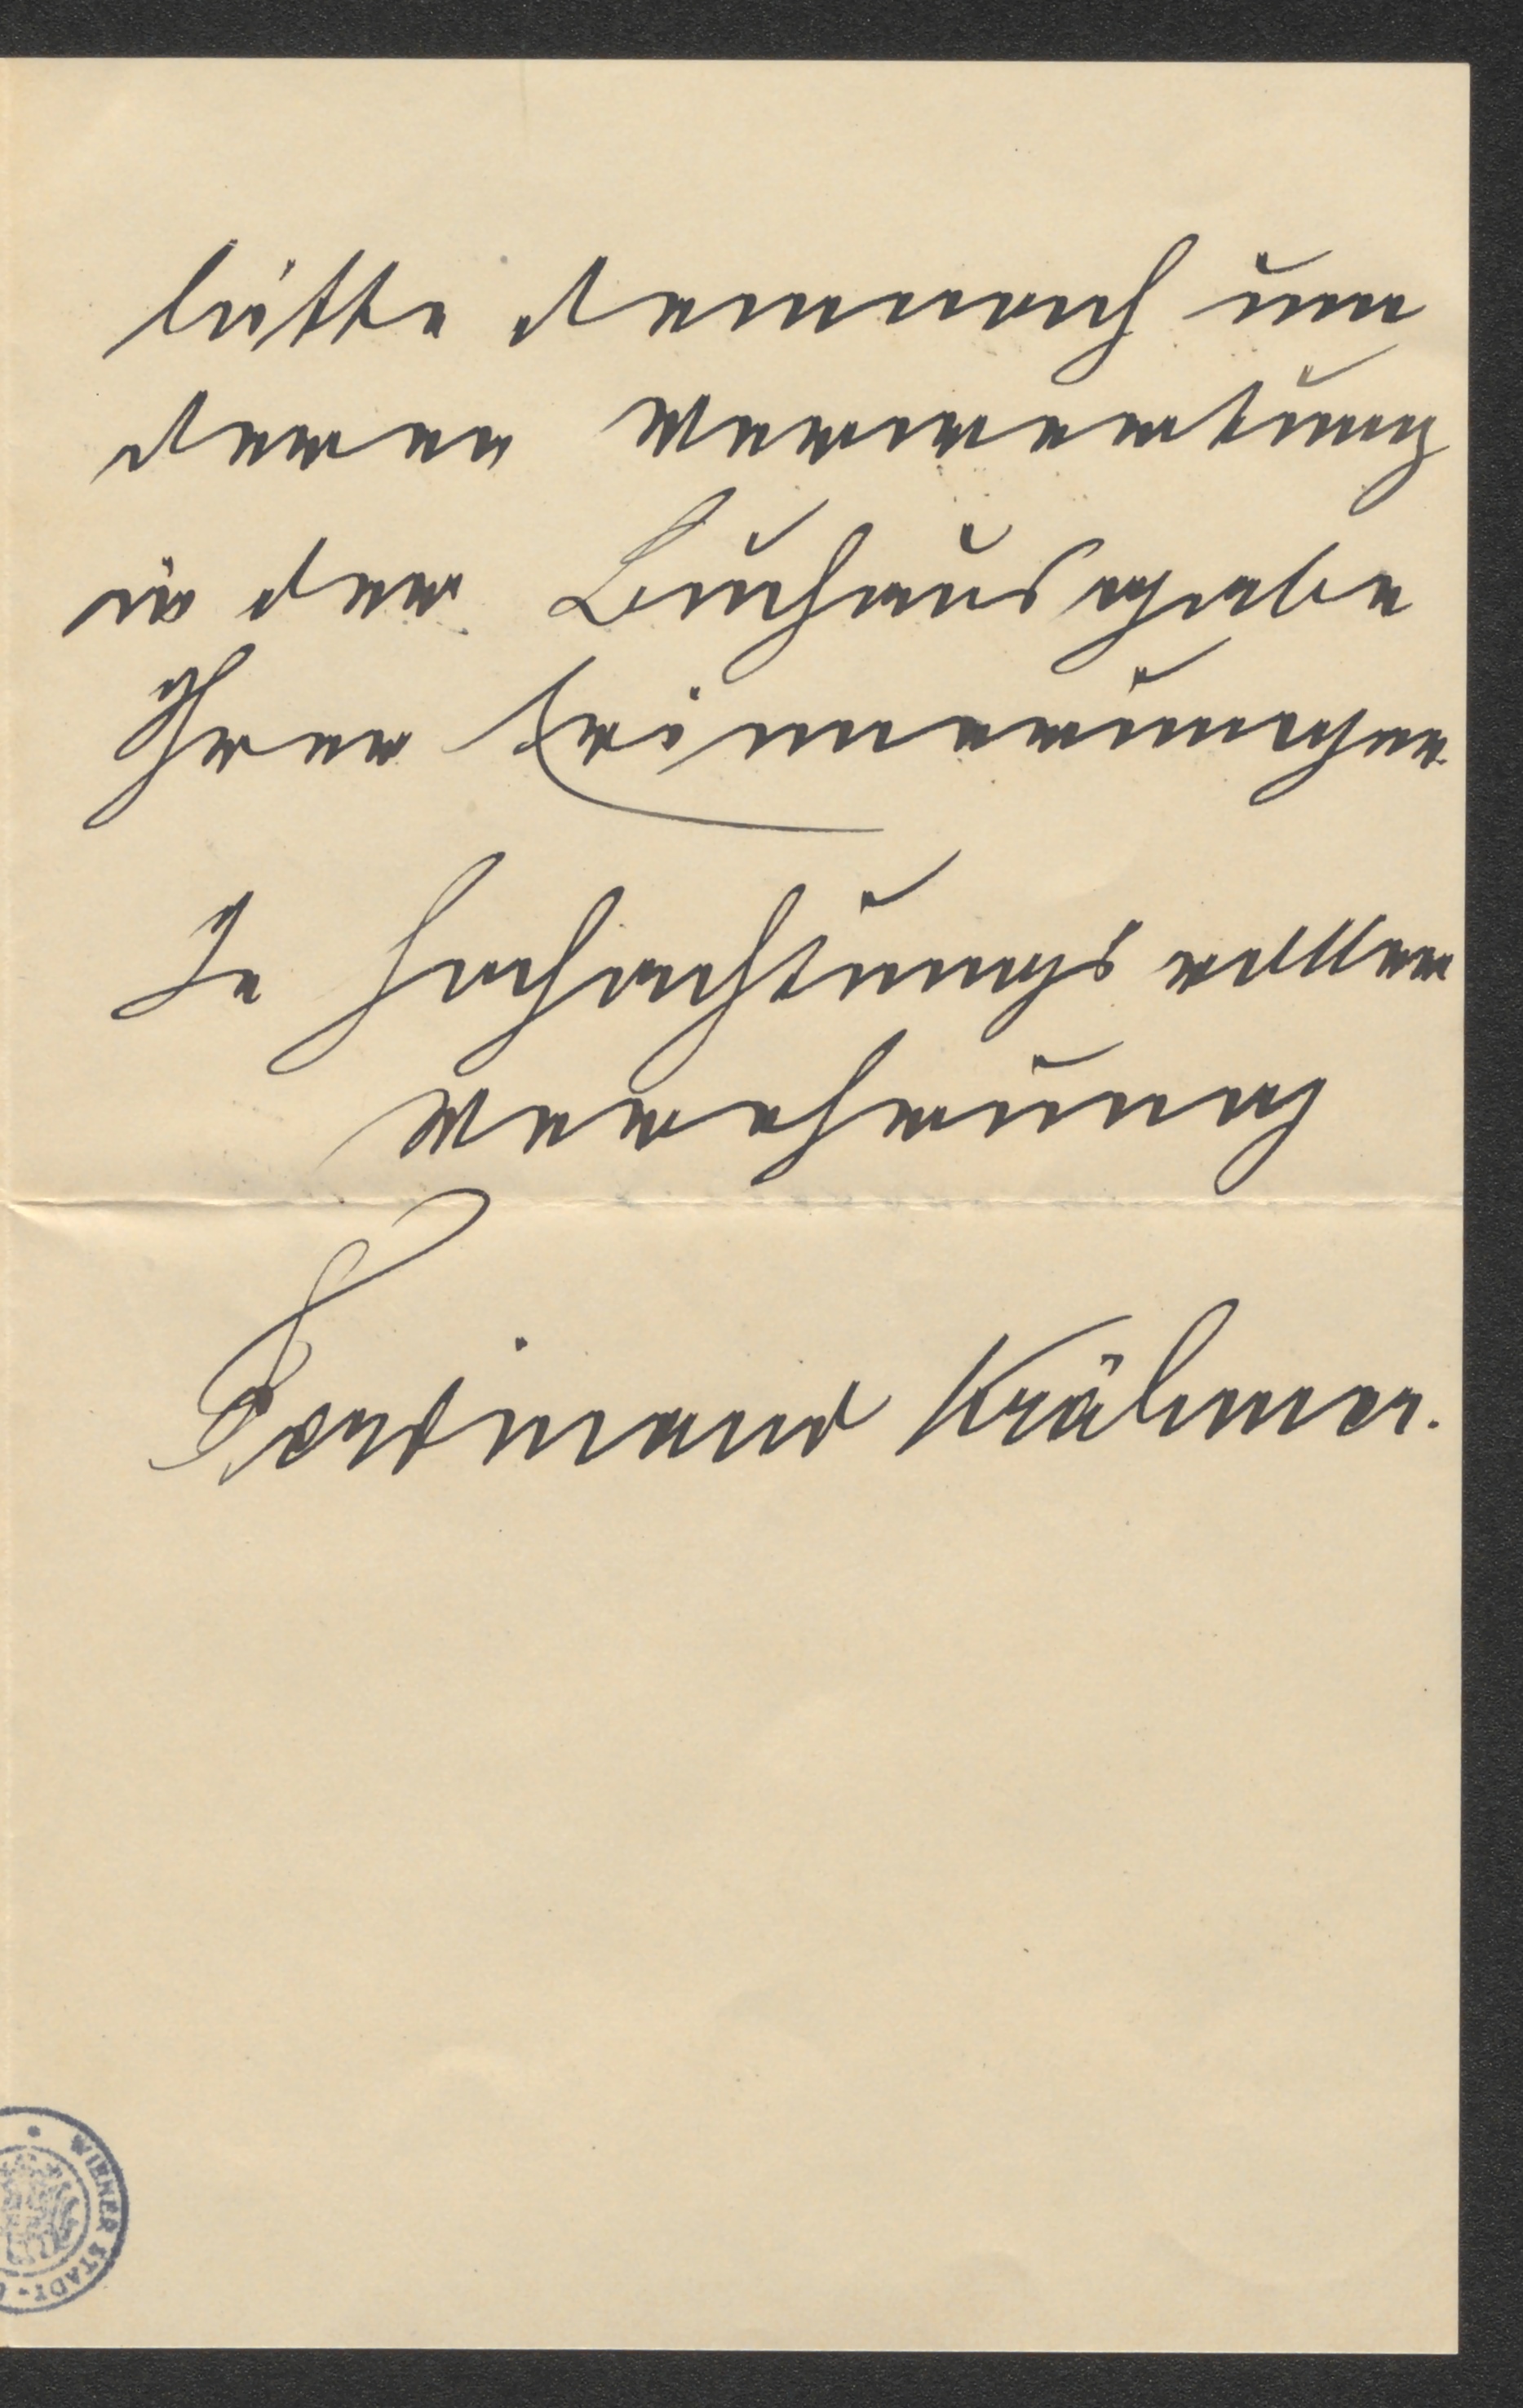 bitte demnach um
deren Verwertung
in der Buchausgabe
Ihrer Erinnerungen.
In hochachtungsvoller
Verehrung
Ferdinand Krähmer.
WIENER STADT-